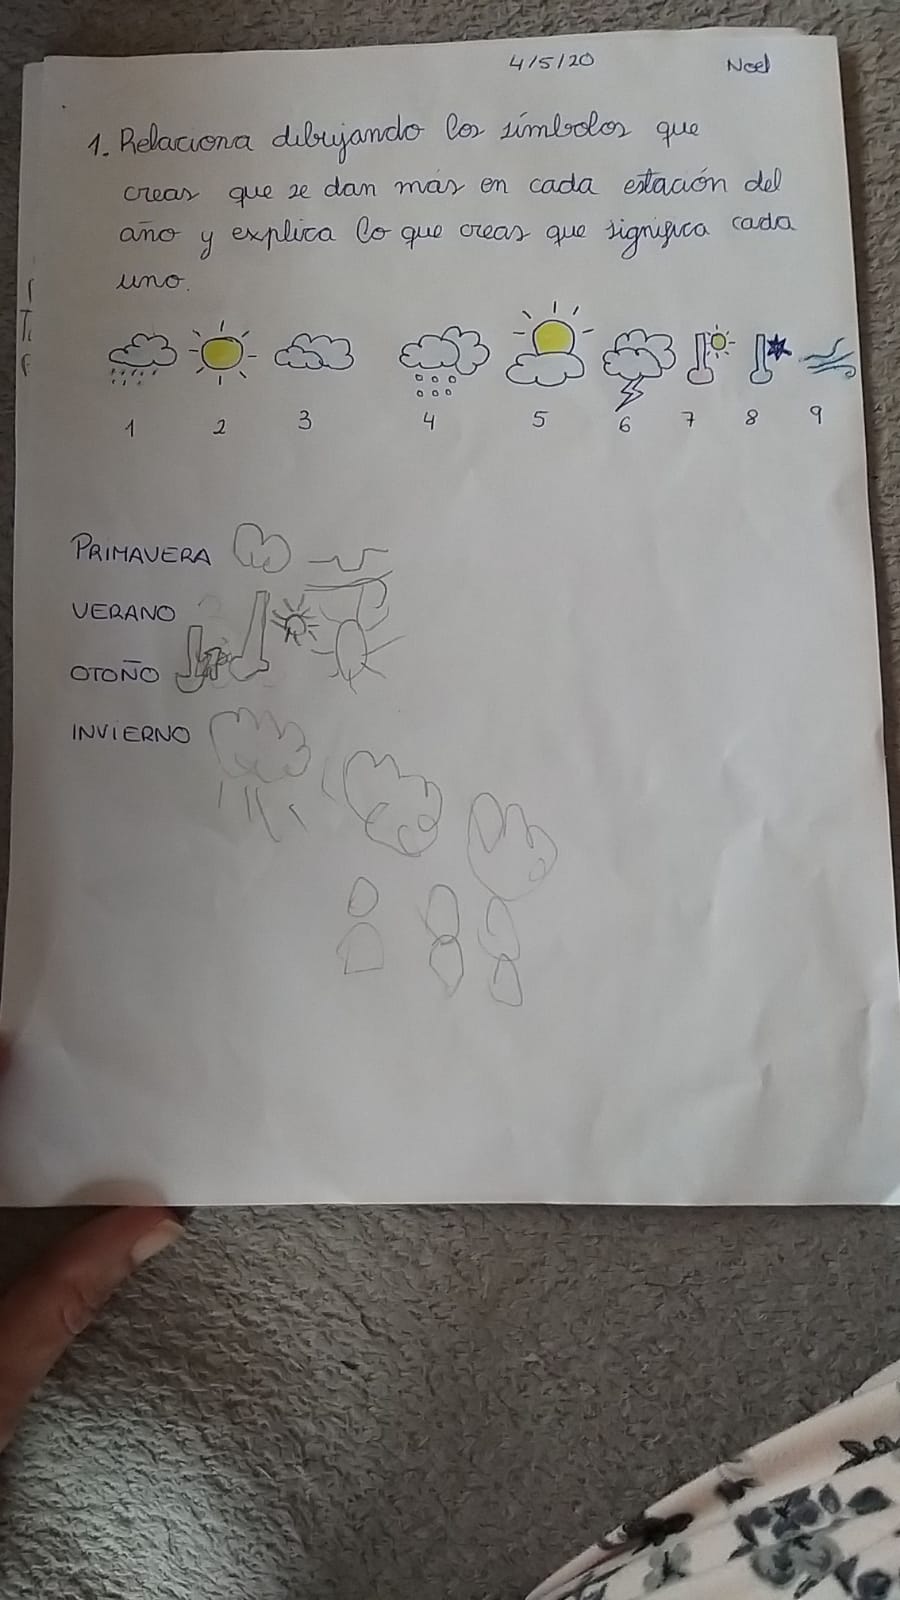 4/5/20 Noel
1. Relaciona dibujando los símbolos que
creas que se dan más en cada estación del
año y explica lo que creas que significa cada
uno.
1 2 3 4 5 6 7 8 9
PRIMAVERA
VERANO
OTOÑO
INVIERNO